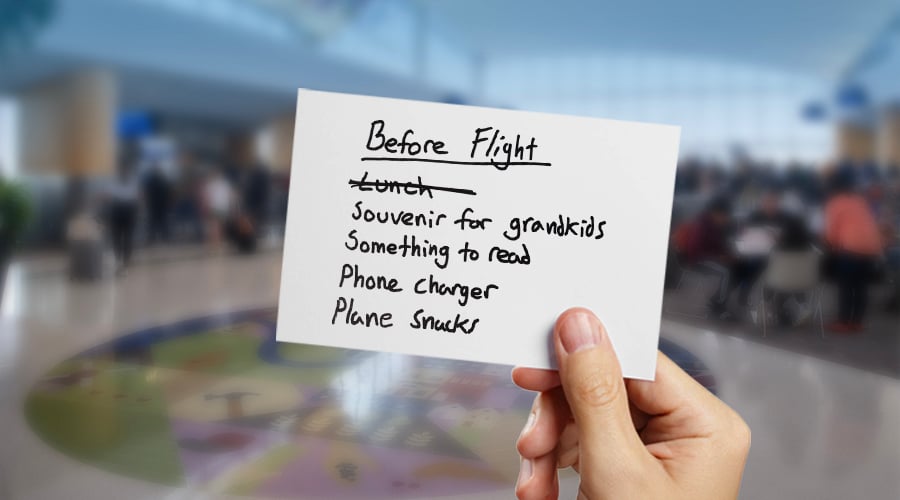 Before Flight
Lunch
Souvenir for grandkids
Something to read
Phone charger
Plane Snacks